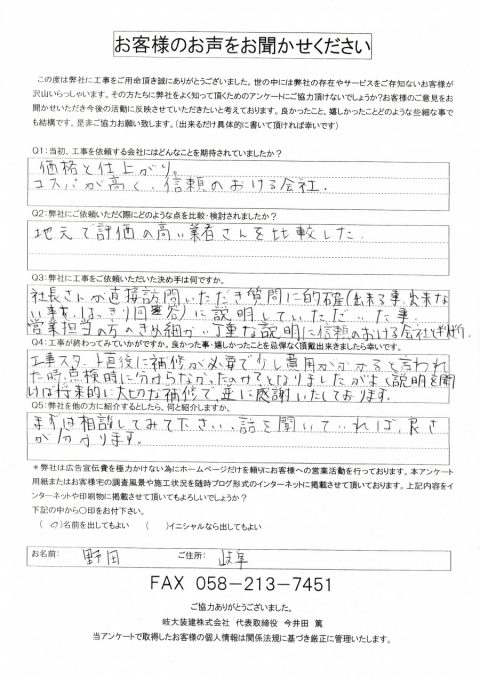 お客様のお声をお聞かせください
この度は弊社に工事をご用命頂き誠にありがとうございました。世の中には弊社の存在やサービスをご存知ないお客様が
沢山いらっしゃいます。その方たちに弊社をよく知って頂くためのアンケートにご協力頂けないでしょうか?お客様のご意見をお
聞かせいただき今後の活動に反映させていただきたいと考えております。良かったこと、嬉しかったことどのような些細な事で
も結構です。是非ご協力お願い致します。(出来るだけ具体的に書いて頂ければ幸いです)
Q1:当初、工事を依頼する会社にはどんなことを期待されていましたか?
価格と仕上がり。
コスパが高く、信頼のおける会社.
Q2:弊社にご依頼いただく際にどのような点を比較・検討されましたか?
地元で評価の高い業者さんを比較した.
Q3:弊社に工事をご依頼いただいた決め手は何ですか。
社長さんが直接訪問いただき質問に的確(出来る事、出来な
い事を、はっきり回答)に説明していただいた事.
営業担当の方のきめ細かい丁重な説明に信頼のおける会社と判断.
Q4:工事が終わってみていかがですか。良かった事・嬉しかった事を忌憚なく頂戴出来きましたら幸いです。
工事スタート直後に補修が必要で少し費用がかかると言われ
た時、点検時に分からなかったのか?となりましたがよく説明を聞
けば将来的に大切な補修で、逆に感謝いたしております.
Q5:弊社を他の方に紹介するとしたら、何と紹介しますか。
まずは相談してみて下さい、話を聞いていれば、良さ
が分かります。
＊弊社は広告宣伝費を極力かけない為にホームページだけを頼りにお客様への営業活動を行っております。本アンケート
用紙またはお客様宅の調査風景や施工状況を随時ブログ形式のインターネットに掲載させて頂いております。上記内容をイ
ンターネットや印刷物に掲載させて頂いてもよろしいでしょうか?
下記の中から〇印をお付下さい。
(○)名前を出してもよい ( )イニシャルなら出してもよい
お名前: 野田 ご住所: 岐阜
FAX 058－213－7451
ご協力ありがとうございました。
岐大装建株式会社 代表取締役 今井田 篤
当アンケートで取得したお客様の個人情報は関係法規に基づき厳正に管理いたします。